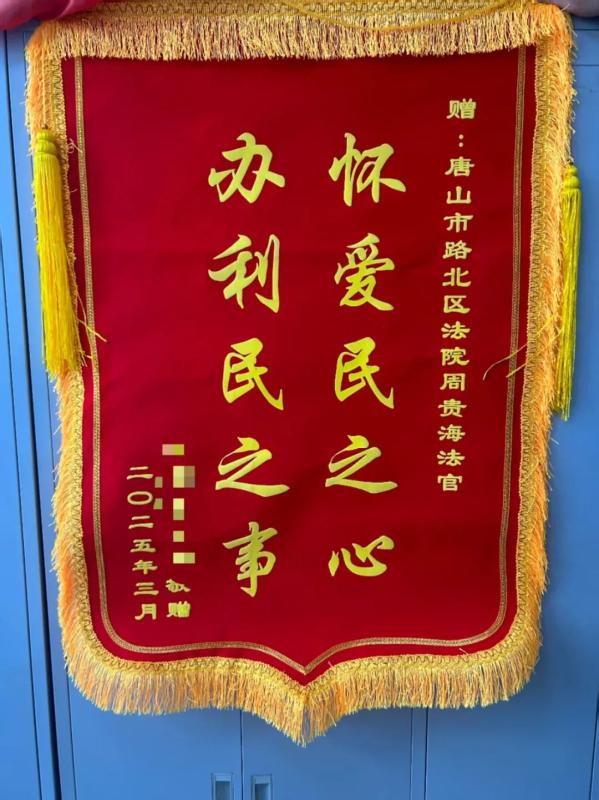 赠：唐山市路北区法院周贵海法官
怀爱民之心
办利民之事
敬赠
二〇二五年三月